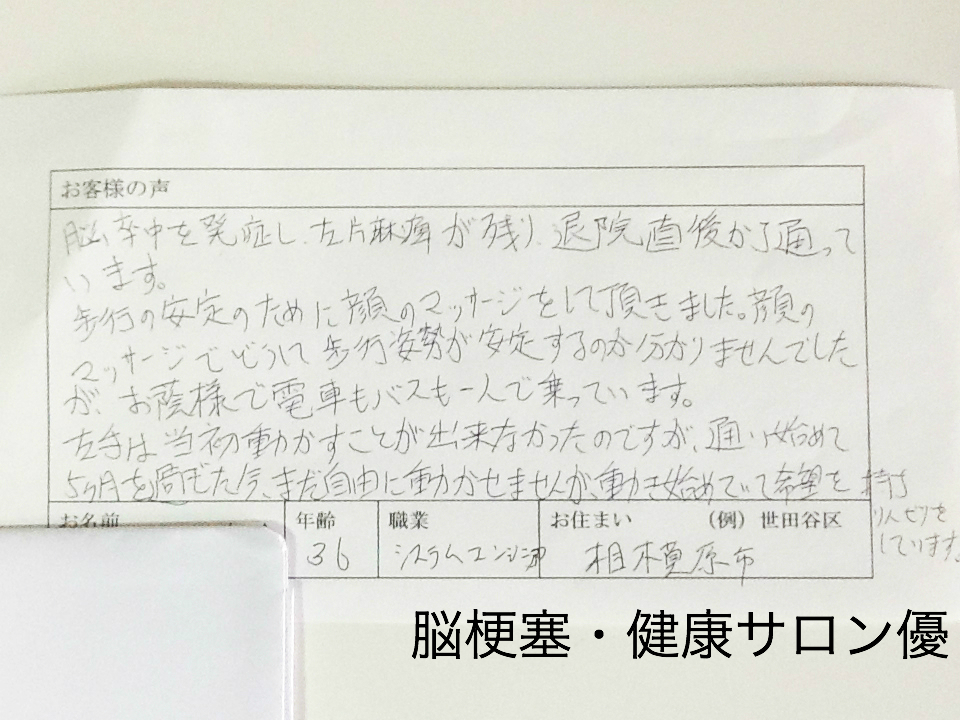 お客様の声
脳卒中を発症し、左片麻痺が残り、退院直後から通って
います。
歩行の安定のために顔のマッサージをして頂きました。顔の
マッサージでどうして歩行姿勢が安定するのか分かりませんでした
が、お蔭様で電車もバスも一人で乗っています。
左手は当初動かすことが出来なかったのですが、通い始めて
5ヶ月を過ぎた今、まだ自由に動かせませんが、動き始めていて希望を持ち
リハビリを
しています。
お名前 年齢 職業 お住まい (例) 世田谷区
36 システムエンジニア 相模原市
脳梗塞・健康サロン優